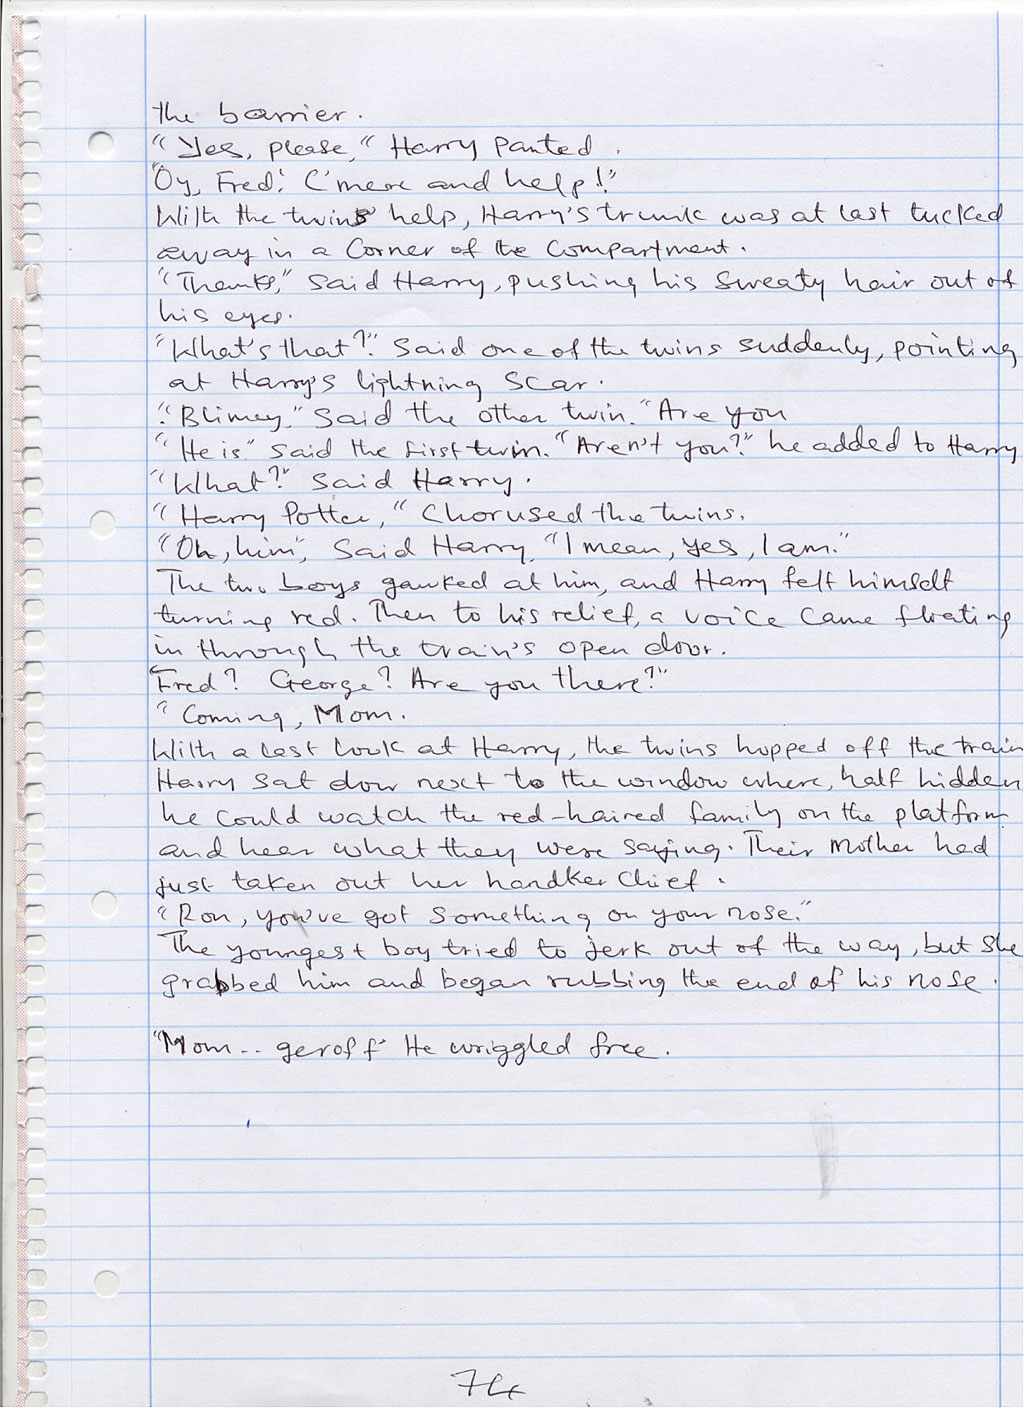 the barrier.
"Yes, please," Harry panted.
"Oy, Fred! C'mere and help!"
With the twins' help, Harry's trunk was at last tucked
away in a corner of the compartment.
"Thanks," said Harry, pushing his sweaty hair out of
his eyes.
"What's that?" said one of the twins suddenly, pointing
at Harry's lightning scar.
"Blimey," said the other twin. "Are you
"He is" said the first twin. "Aren't you?" he added to Harry
"What?" said Harry.
"Harry Potter," chorused the twins.
"Oh, him", said Harry, "I mean, yes, I am."
The two boys gawked at him, and Harry felt himself
turning red. Then to his relief, a voice came floating
in through the train's open door.
"Fred? George? Are you there?"
"Coming, Mom.
With a last look at Harry, the twins hopped off the train
Harry sat dow next to the window where, half hidden
he could watch the red-haired family on the platform
and hear what they were saying. Their mother had
just taken out her handkerchief.
"Ron, you've got something on your nose."
The youngest boy tried to jerk out of the way, but she
grabbed him and began rubbing the end of his nose.
"Mom -- geroff" He wriggled free.
74